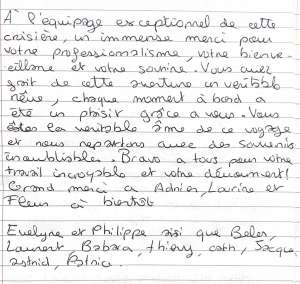 À l'équipage exceptionnel de cette
crisière, un immense merci pour
votre professionnalisme, votre bienve-
illance et votre sourire. Vous avez
fait de cette aventure un véritable
rêve, chaque moment à bord a
été un plaisir grâce a vous. Vous
êtes la véritable âme de ce voyage
et nous repartons avec des souvenirs
inoubliables. Bravo a tous pour votre
travail incroyable et votre dévouement!
Grand merci a Adrien, Laurine et
Fleur à bientôt
Evelyne et Philippe aisi que
Laurent, Babara, thierry, cath,
astrid, Patricia.